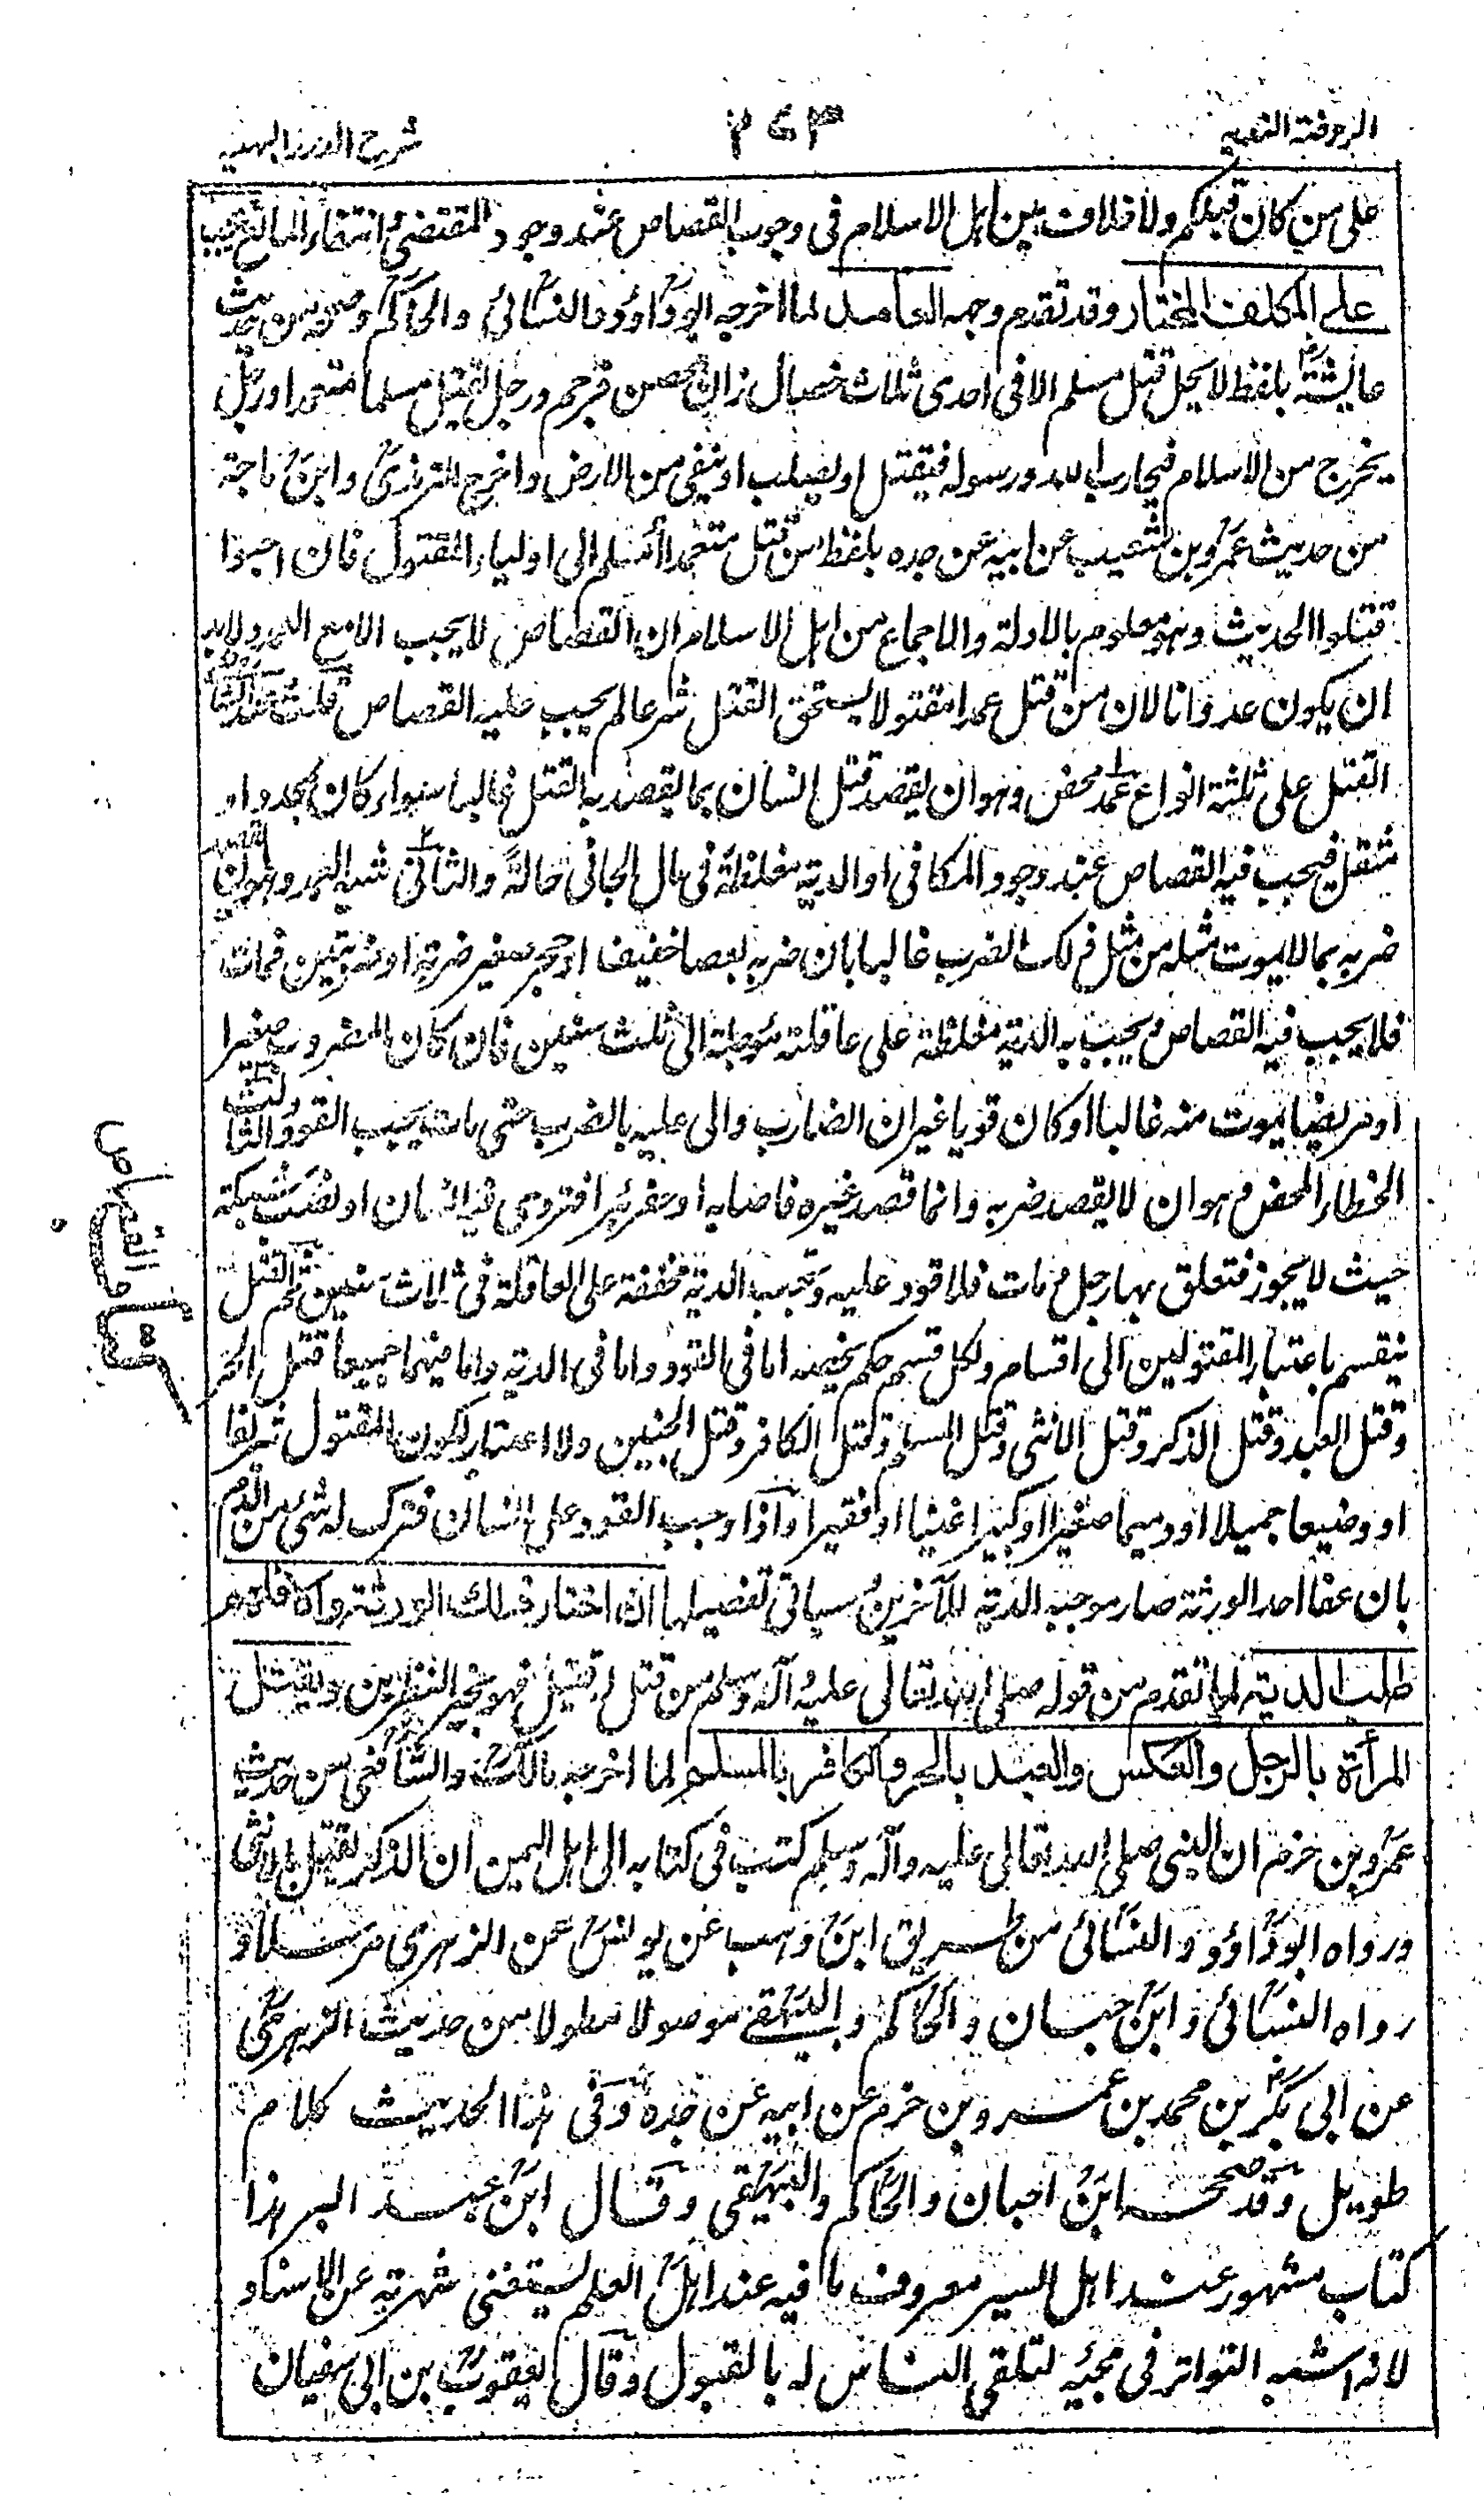 الروضة الندية
٣٧٣
شرح الدرر البهية
على من كان قبلكم ولا خلاف بين اهل الاسلام فى وجوب القصاص عند وجود المقتضى وانتفاء المانع يجب
على المكلف المختار وقد تقدم وجهه العامد لما اخرجه ابوداؤد والنسائى والحاكم وصححه من حديث
عائشة بلفظ لا يحل قتل مسلم الا فى احدى ثلاث خصال زان محصن فيرجم ورجل يقتل مسلما متعمدا ورجل
يخرج من الاسلام فيحارب الله ورسوله فيقتل او يصلب او ينفى من الارض واخرج الترمذى وابن ماجة
من حديث عمرو بن شعيب عن ابيه عن جده بلفظ من قتل متعمدا أسلم الى اولياء المقتول فان احبوا
قتلوا الحديث وهو معلوم بالادلة والاجماع من اهل الاسلام ان القصاص لا يجب الا مع العمد ولابد
ان يكون عدوانا لان من قتل عمدا مقتولا يستحق القتل شرعا لم يجب عليه القصاص قلت عند الشافعى
القتل على ثلثة انواع عمد محض وهو ان يقصد قتل انسان بما يقصد به القتل غالبا سواء كان بمحدد او
مثقل فيجب فيه القصاص عند وجود المكافى او الدية مغلظة فى مال الجانى حالة والثانى شبه العمد وهو ان يقصد
ضربه بما لا يموت مثله من مثل ذلك الضرب غالبا بان ضربه بعصا خفيف او حجر صغير ضربة او ضربتين فمات
فلا يجب فيه القصاص ويجب به الدية مغلظة على عاقلته مؤجلة الى ثلث سنين فان كان المضروب صغيرا
او مريضا يموت منه غالبا او كان قويا غير ان الضارب والى عليه بالضرب حتى مات يجب القود والثالث
الخطاء المحض وهو ان لا يقصد ضربه وانما قصد غيره فاصابه او حفر بئرا فتردى فيه انسان او نصب شبكة
حيث لا يجوز فتعلق بها رجل ومات فلا قود عليه وتجب الدية مخففة على العاقلة فى ثلاث سنين ثم القتل
ينقسم باعتبار المقتولين الى اقسام ولكل قسم حكم يخصه اما فى القود واما فى الدية واما فيهما جميعا قتل الحر
وقتل العبد وقتل الذكر وقتل الانثى وقتل المسلم وقتل الكافر وقتل الجنين ولا اعتبار لكون المقتول شريفا
او وضيعا جميلا او دميما صغيرا او كبيرا غنيا او فقيرا واذا وجب القود على انسان فترك له شئ من الدم
بان عفا احد الورثة صار موجبه الدية للآخرين وسياتى تفصيلها ان اختار ذلك الورثة والا فلهم
طلب الدية لما تقدم من قوله صلى الله تعالى عليه وآله وسلم من قتل له قتيل فهو بخير النظرين ويقتل
المرأة بالرجل والعكس والعبد بالحر والكافر بالمسلم لما اخرجه مالك والشافعى من حديث
عمرو بن حزم ان النبى صلى الله تعالى عليه وآله وسلم كتب فى كتابه الى اهل اليمن ان الذكر يقتل بالانثى
ورواه ابوداؤد والنسائى من طريق ابن وهب عن يونس عن الزهرى مرسلا و
رواه النسائى وابن حبان والحاكم والبيهقى موصولا مطولا من حديث الزهرى
عن ابى بكر بن محمد بن عمرو بن حزم عن ابيه عن جده وفى هذا الحديث كلام
طويل وقد صححه ابن حبان والحاكم والبيهقى وقال ابن عبد البر هذا
كتاب مشهور عند اهل السير معروف ما فيه عند اهل العلم يستغنى شهرته عن الاسناد
لانه اشبه التواتر فى مجيئه لتلقى الناس له بالقبول وقال يعقوب بن ابى سفيان
كتاب القصاص